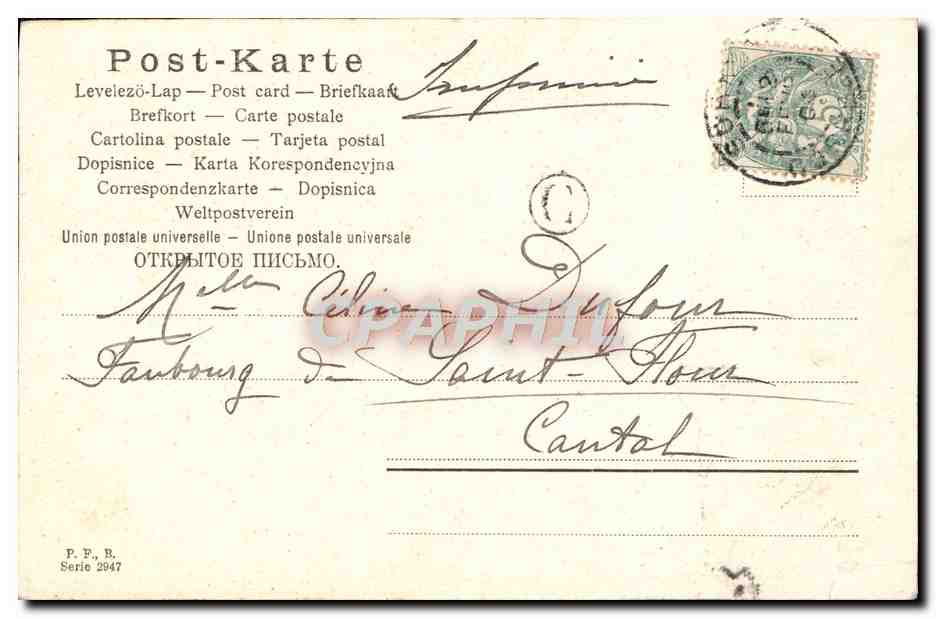 Post-Karte
Levelezö-Lap — Post card — Briefkaart
Brefkort — Carte postale
Cartolina postale — Tarjeta postal
Dopisnice — Karta Korespondencyjna
Correspondenzkarte — Dopisnica
Weltpostverein
Union postale universelle — Unione postale universale
ОТКРЫТОЕ ПИСЬМО.
Imprimé
C
Melle Céline Dufour
Faubourg de Saint-Flour
Cantal
CPAPHIL
P. F., B.
Serie 2947